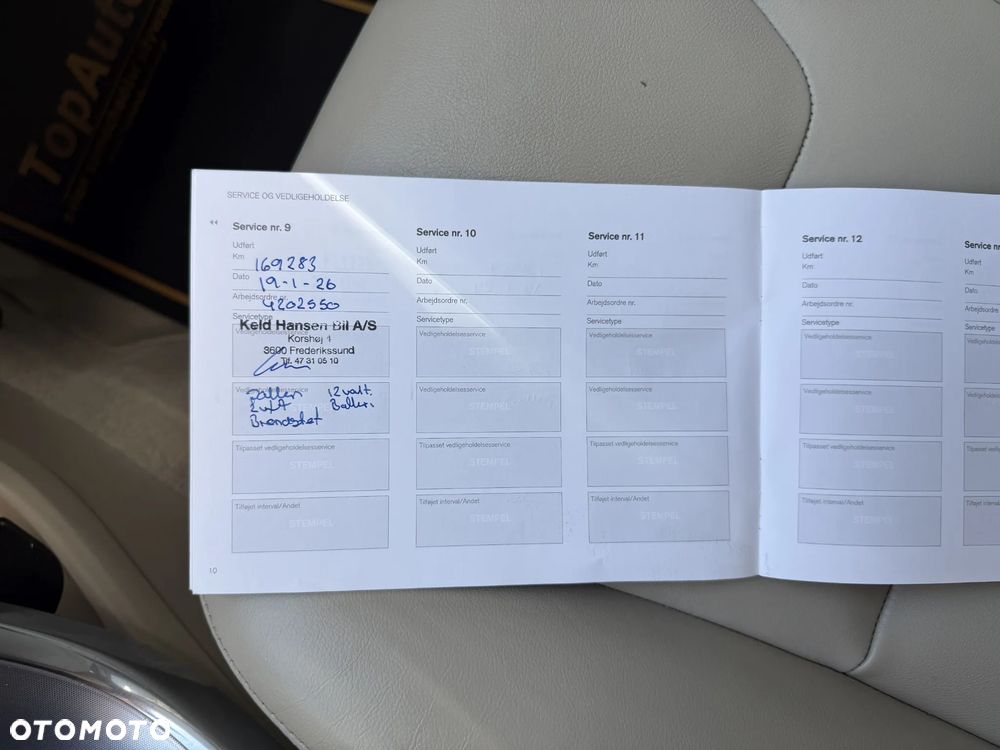 TopAuto
SERVICE OG VEDLIGEHOLDELSE
Service nr. 9
Udført
Km 169283
Dato 19-1-26
Arbejdsordre nr. 4202550
Servicetype
Keld Hansen Bil A/S
Korshøj 1
3600 Frederikssund
Tlf. 47 31 05 10
12 volt.
Batteri
STEMPEL
Tilpasset vedligeholdelsesservice
STEMPEL
Tilføjet interval/Andet
STEMPEL
10
Service nr. 10
Udført
Km
Dato
Arbejdsordre nr.
Servicetype
Vedligeholdelsesservice
STEMPEL
Vedligeholdelsesservice
STEMPEL
Tilpasset vedligeholdelsesservice
STEMPEL
Tilføjet interval/Andet
STEMPEL
Service nr. 11
Udført
Km
Dato
Arbejdsordre nr.
Servicetype
Vedligeholdelsesservice
STEMPEL
Vedligeholdelsesservice
STEMPEL
Tilpasset vedligeholdelsesservice
STEMPEL
Tilføjet interval/Andet
STEMPEL
Service nr. 12
Udført
Km
Dato
Arbejdsordre nr.
Servicetype
Vedligeholdelsesservice
STEMPEL
Vedligeholdelsesservice
STEMPEL
Tilpasset vedligeholdelsesservice
STEMPEL
Tilføjet interval/Andet
STEMPEL
Service nr.
Udført
Km
Dato
Arbejdsordre
Servicetype
OTOMOTO